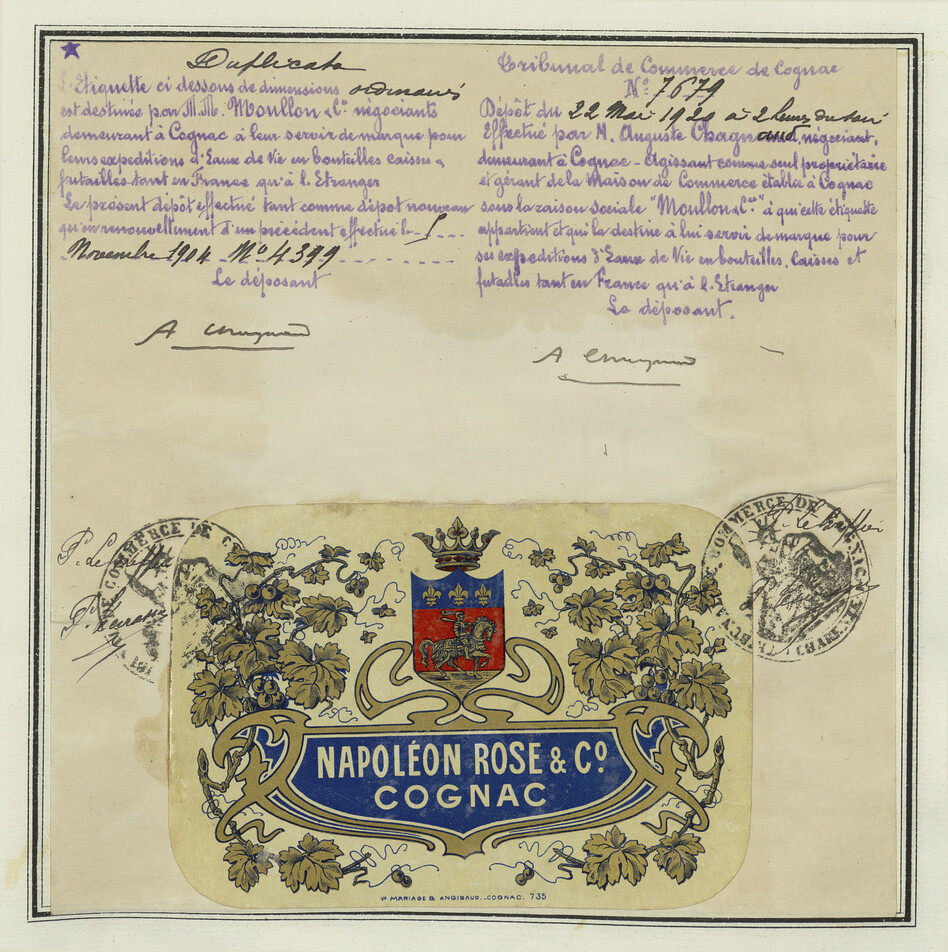 Duplicata
L'Etiquette ci dessous de dimensions ordinaires
est destinée par M.M. Moullon & Cº négociants
demeurant à Cognac à leur servir de marque pour
leurs expeditions d'Eaux de Vie en bouteilles caisses &
futailles tant en France qu'à l'Etranger
Le présent dépôt effectué tant comme dépot nouveau
qu'en renouvellement d'un précédent effectué le 5
Novembre 1904 Nº 4399
Le déposant
Tribunal de Commerce de Cognac
Nº 7679
Dépôt du 22 Mai 1920 à 2 heures du soir
Effectué par M. Auguste Chagnaud, négociant,
demeurant à Cognac - Agissant comme seul propriétaire
et gérant de la Maison de Commerce établie à Cognac
sous la raison sociale "Moullon & Cie" à qui cette étiquette
appartient et qui la destine à lui servir de marque pour
ses expeditions d'Eaux de Vie en bouteilles, Caisses et
futailles tant en France qu'à l'Etranger
Le déposant.
COMMERCE DE C
COMMERCE DE COGNAC
CHARENTE
NAPOLÉON ROSE & Cº
COGNAC
Vº MARIAGE & ANGIBAUD._COGNAC. 735